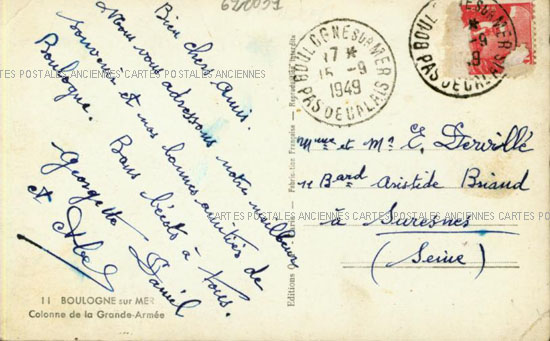 622051
Bien chers amis.
Nous vous adressons notre meilleur
souvenir et nos bonnes amitiés de
Boulogne. Bons bécots à tous.
Georgette Daniel
et Abel
11 BOULOGNE sur MER
Colonne de la Grande-Armée
Fabrication Française - Reproduction interdite
Editions
BOULOGNE SUR MER
17 *
15 -9
1949
PAS DE CALAIS
BOULOGNE SUR MER
*
-9
9
PAS DE CALAIS
Mme et Mr E. Dervillé
Bard Aristide Briand
à Suresnes
(Seine)
CARTES POSTALES ANCIENNES
CARTES POSTALES ANCIENNES CARTES POSTALES ANCIENNES